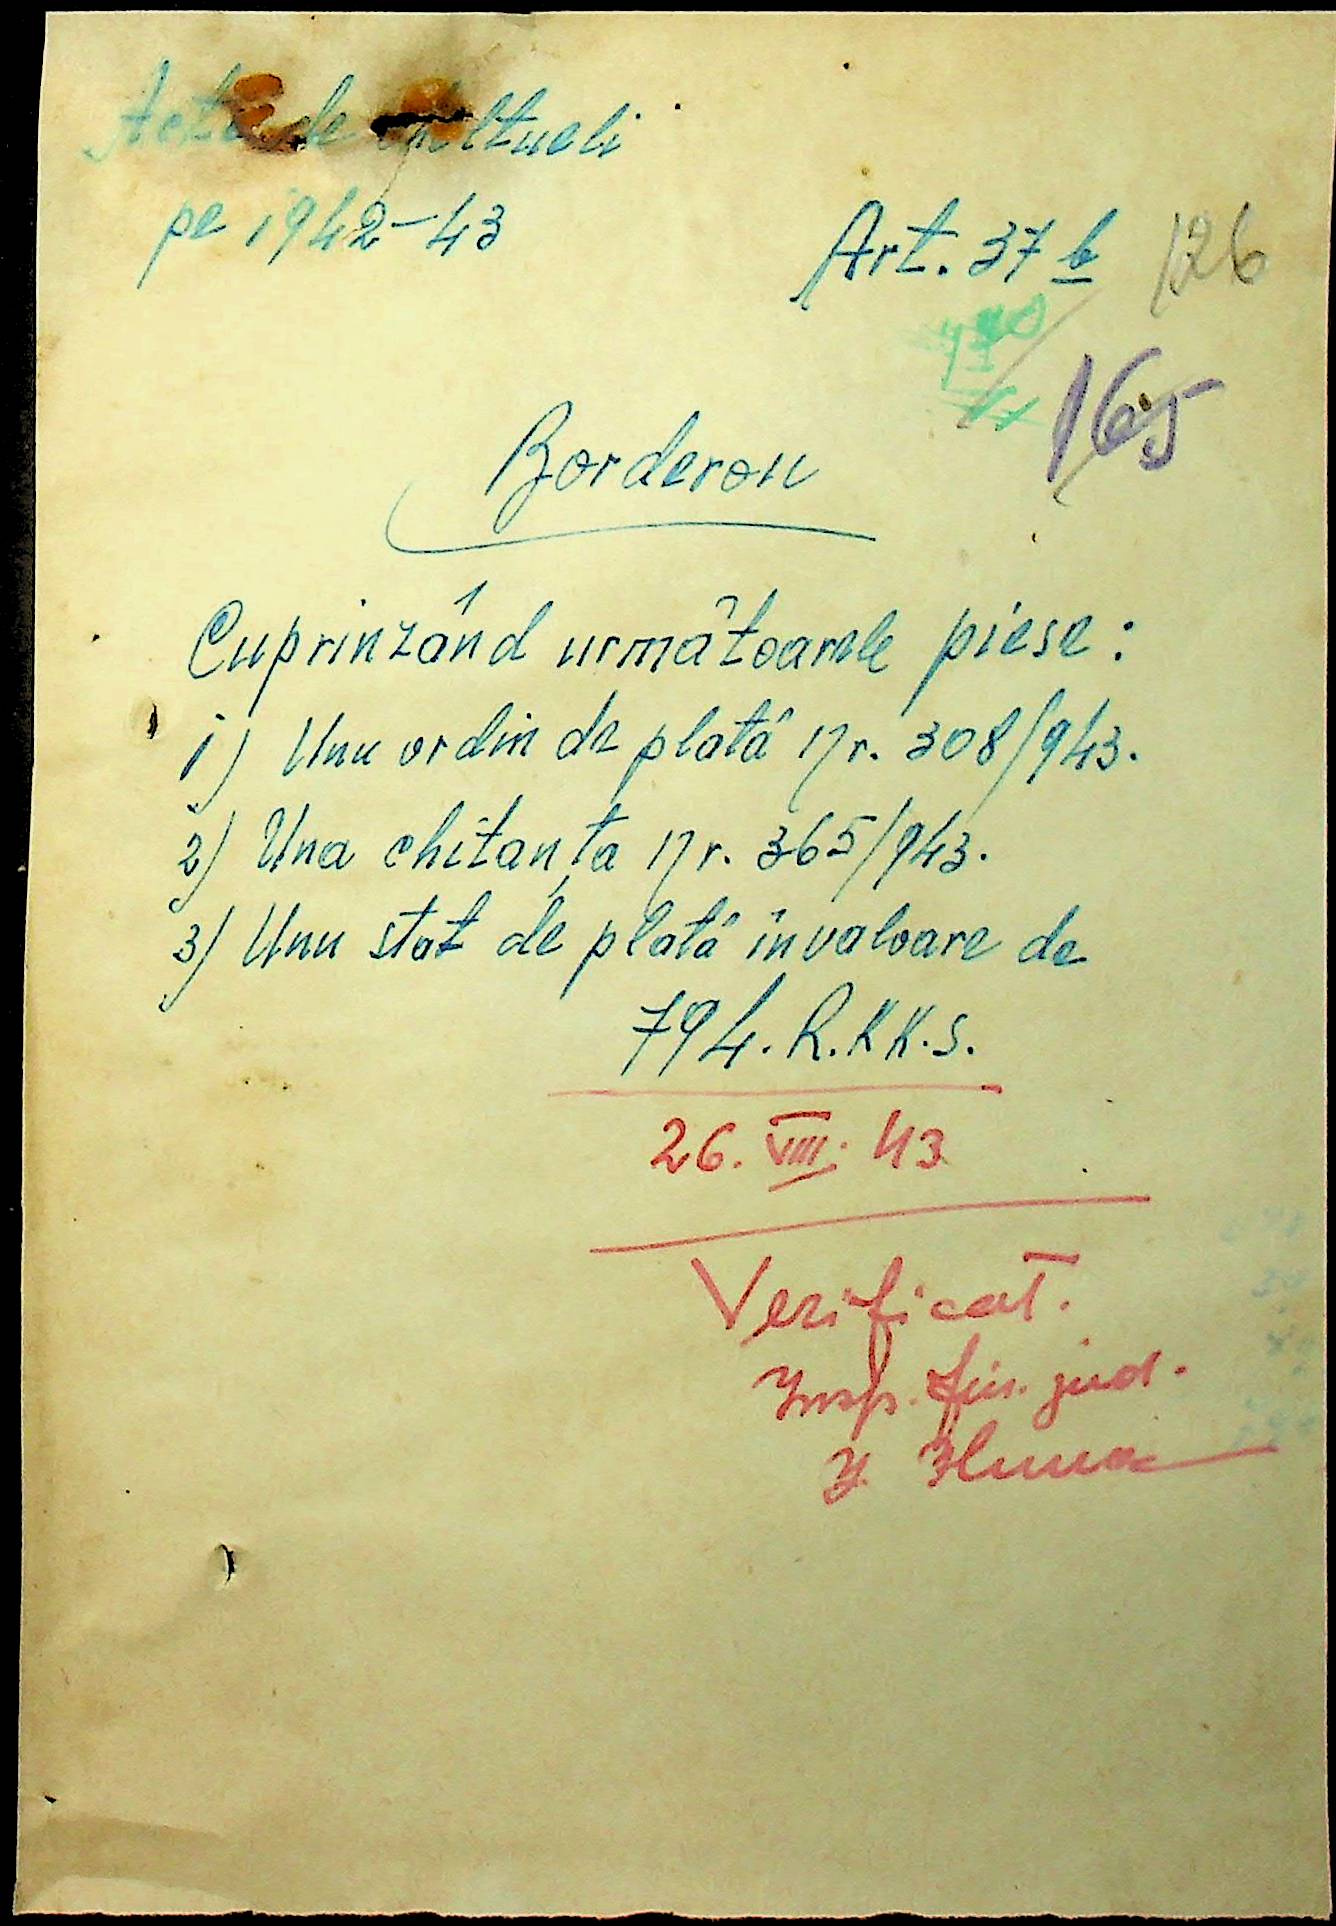 Acte de cheltueli
pe 1942-43
Art. 37 b
126
165
Borderou
Cuprinzând următoarele piese:
1) Unu ordin de plată Nr. 308/943.
2) Una chitanța Nr. 365/943.
3) Unu stat de plată în valoare de
794. R.KK.S.
26. VIII. 43
Verificat.
Insp. fin. jud.